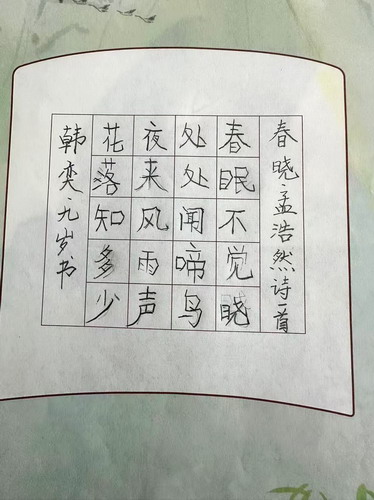 春晓·孟浩然诗一首
春眠不觉晓
处处闻啼鸟
夜来风雨声
花落知多少
韩奕·九岁书